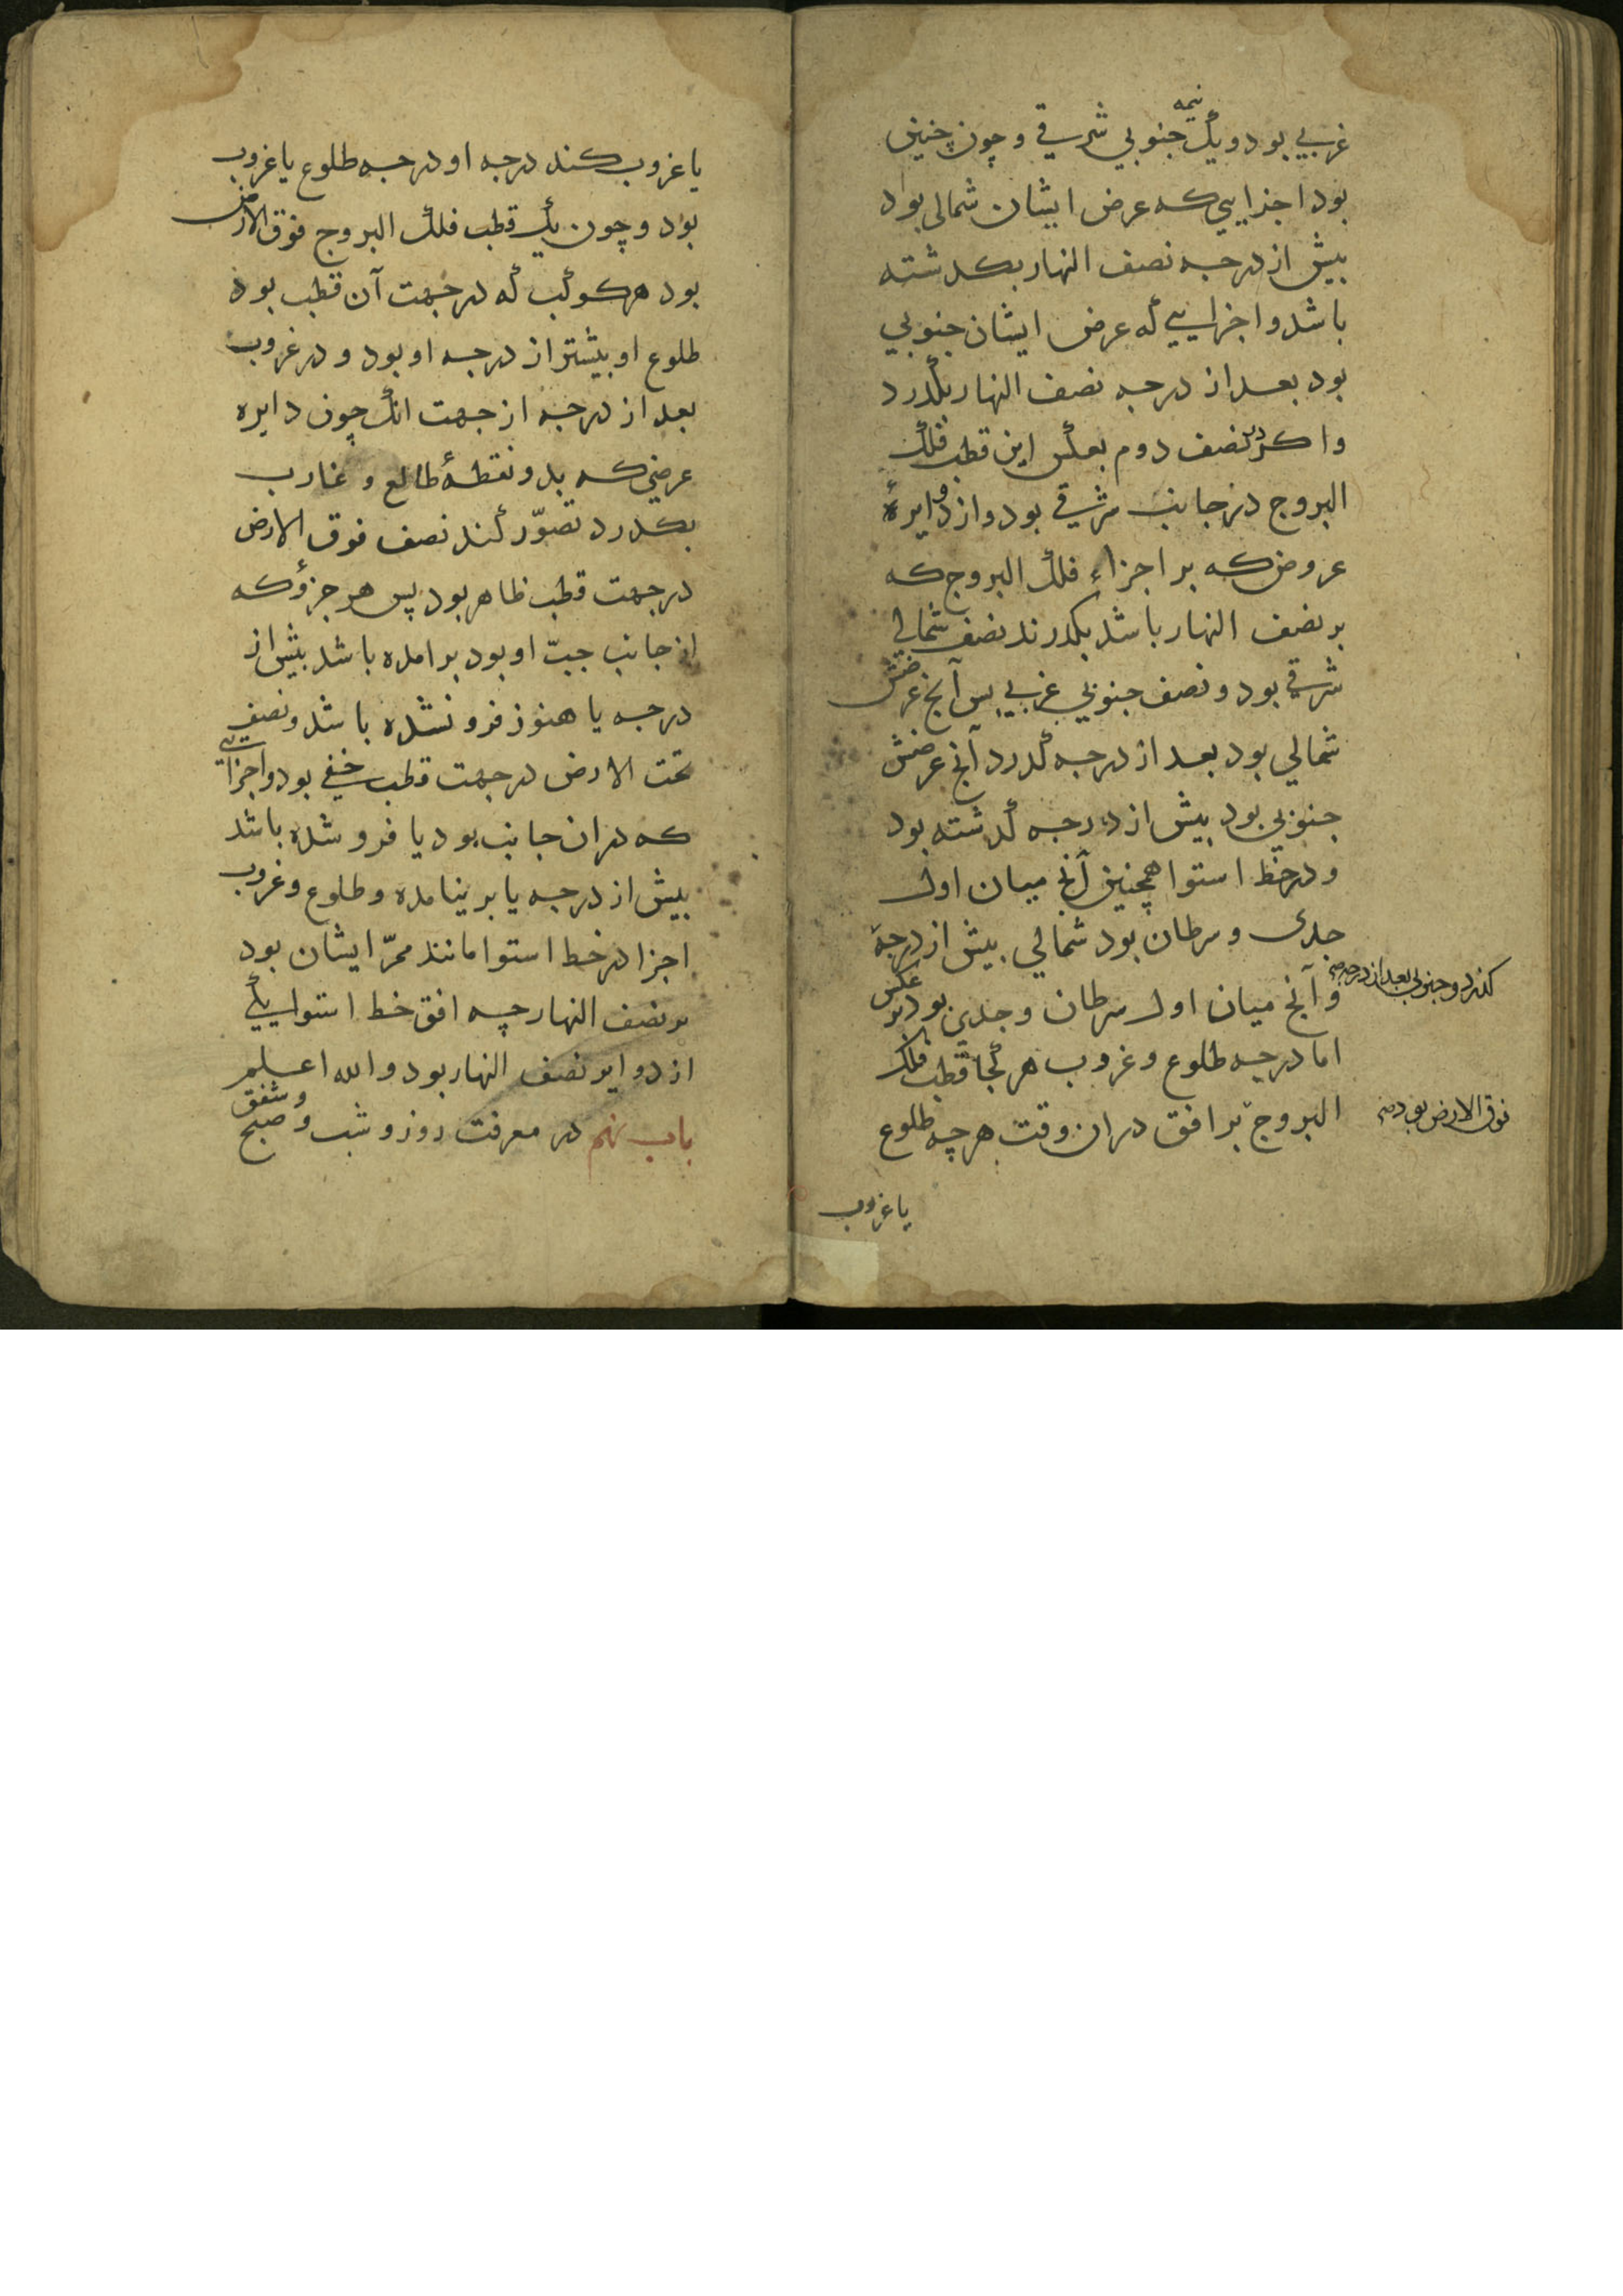 غربی بود و یک نیمه جنوبی شرقی و چون چنین
بود اجزایی که عرض ایشان شمالی بود
بیش از درجه نصف النهار بکدشته
باشد و اجزایی که عرض ایشان جنوبی
بود بعد از درجه نصف النهار بکدرد
و اکر در نصف دوم بعکس این قطب فلک
البروج در جانب شرقی بود و از دوایرهٔ
عروض که بر اجزاء فلک البروج که
بر نصف النهار باشد بکدرند نصف شمالی
شرقی بود و نصف جنوبی غربی بس آنچ عرضش
شمالی بود بعد از درجه کدرد آنچ عرضش
جنوبی بود بیش از درجه کدشته بود
و در خط استوا همچنین آنچ میان اول
جدی و سرطان بود شمالی بیش از درجهٔ
کذرد و جنوبی بعد از درجه صح
و آنچ میان اول سرطان و جدی بود بر عکس
اما درجه طلوع و غروب هر کجا قطب فلک
البروج بر افق دران وقت هرچه طلوع
فوق الارض بود صح
یا غروب
یا غروب کند درجه او درجه طلوع یا غروب
بود و چون یک قطب فلک البروج فوق الارض
بود هر کوکب که در جهت آن قطب بود
طلوع او بیشتر از درجه او بود و در غروب
بعد از درجه از جهت انک چون دایره
عرضی که بدو نقطهٔ طالع و غارب
بکدرد تصوّر کند نصف فوق الارض
در جهت قطب ظاهر بود پس هر جزؤ که
از جانب او بود برامده باشد بیش از
درجه یا هنوز فرو نشده باشد و نصف
تحت الارض در جهت قطب خفی بود و اجزایی
که دران جانب بود یا فرو شده باشد
بیش از درجه یا بر نیامده و طلوع و غروب
اجزا در خط استوا مانند ممرّ ایشان بود
بر نصف النهار چه افق خط استوا یکی
از دوایر نصف النهار بود و الله اعلم
باب نهم در معرفت روز و شب و صبح و شفق